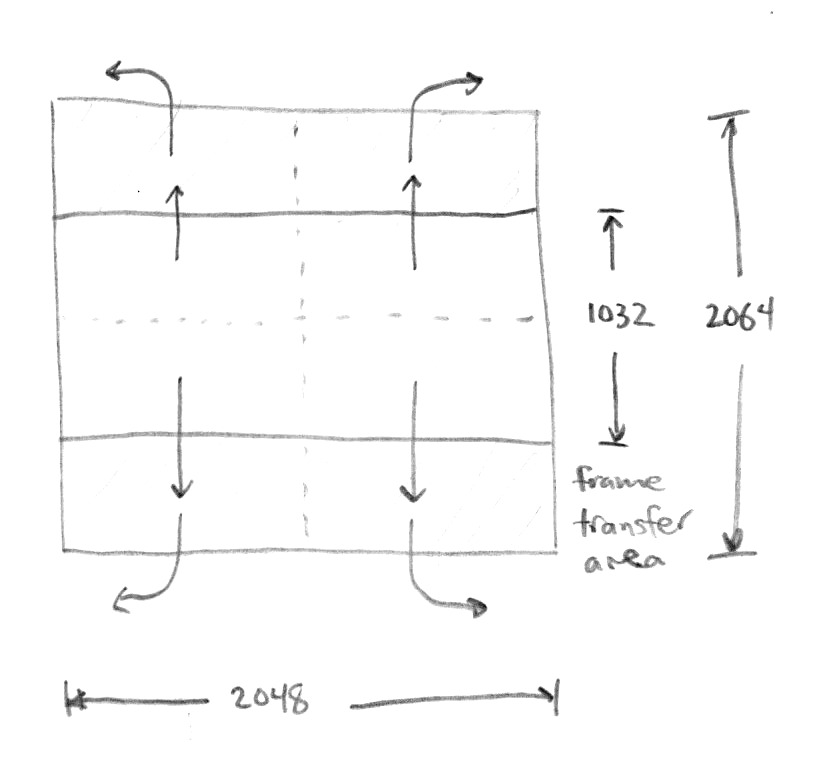 1032
2064
frame
transfer
area
2048